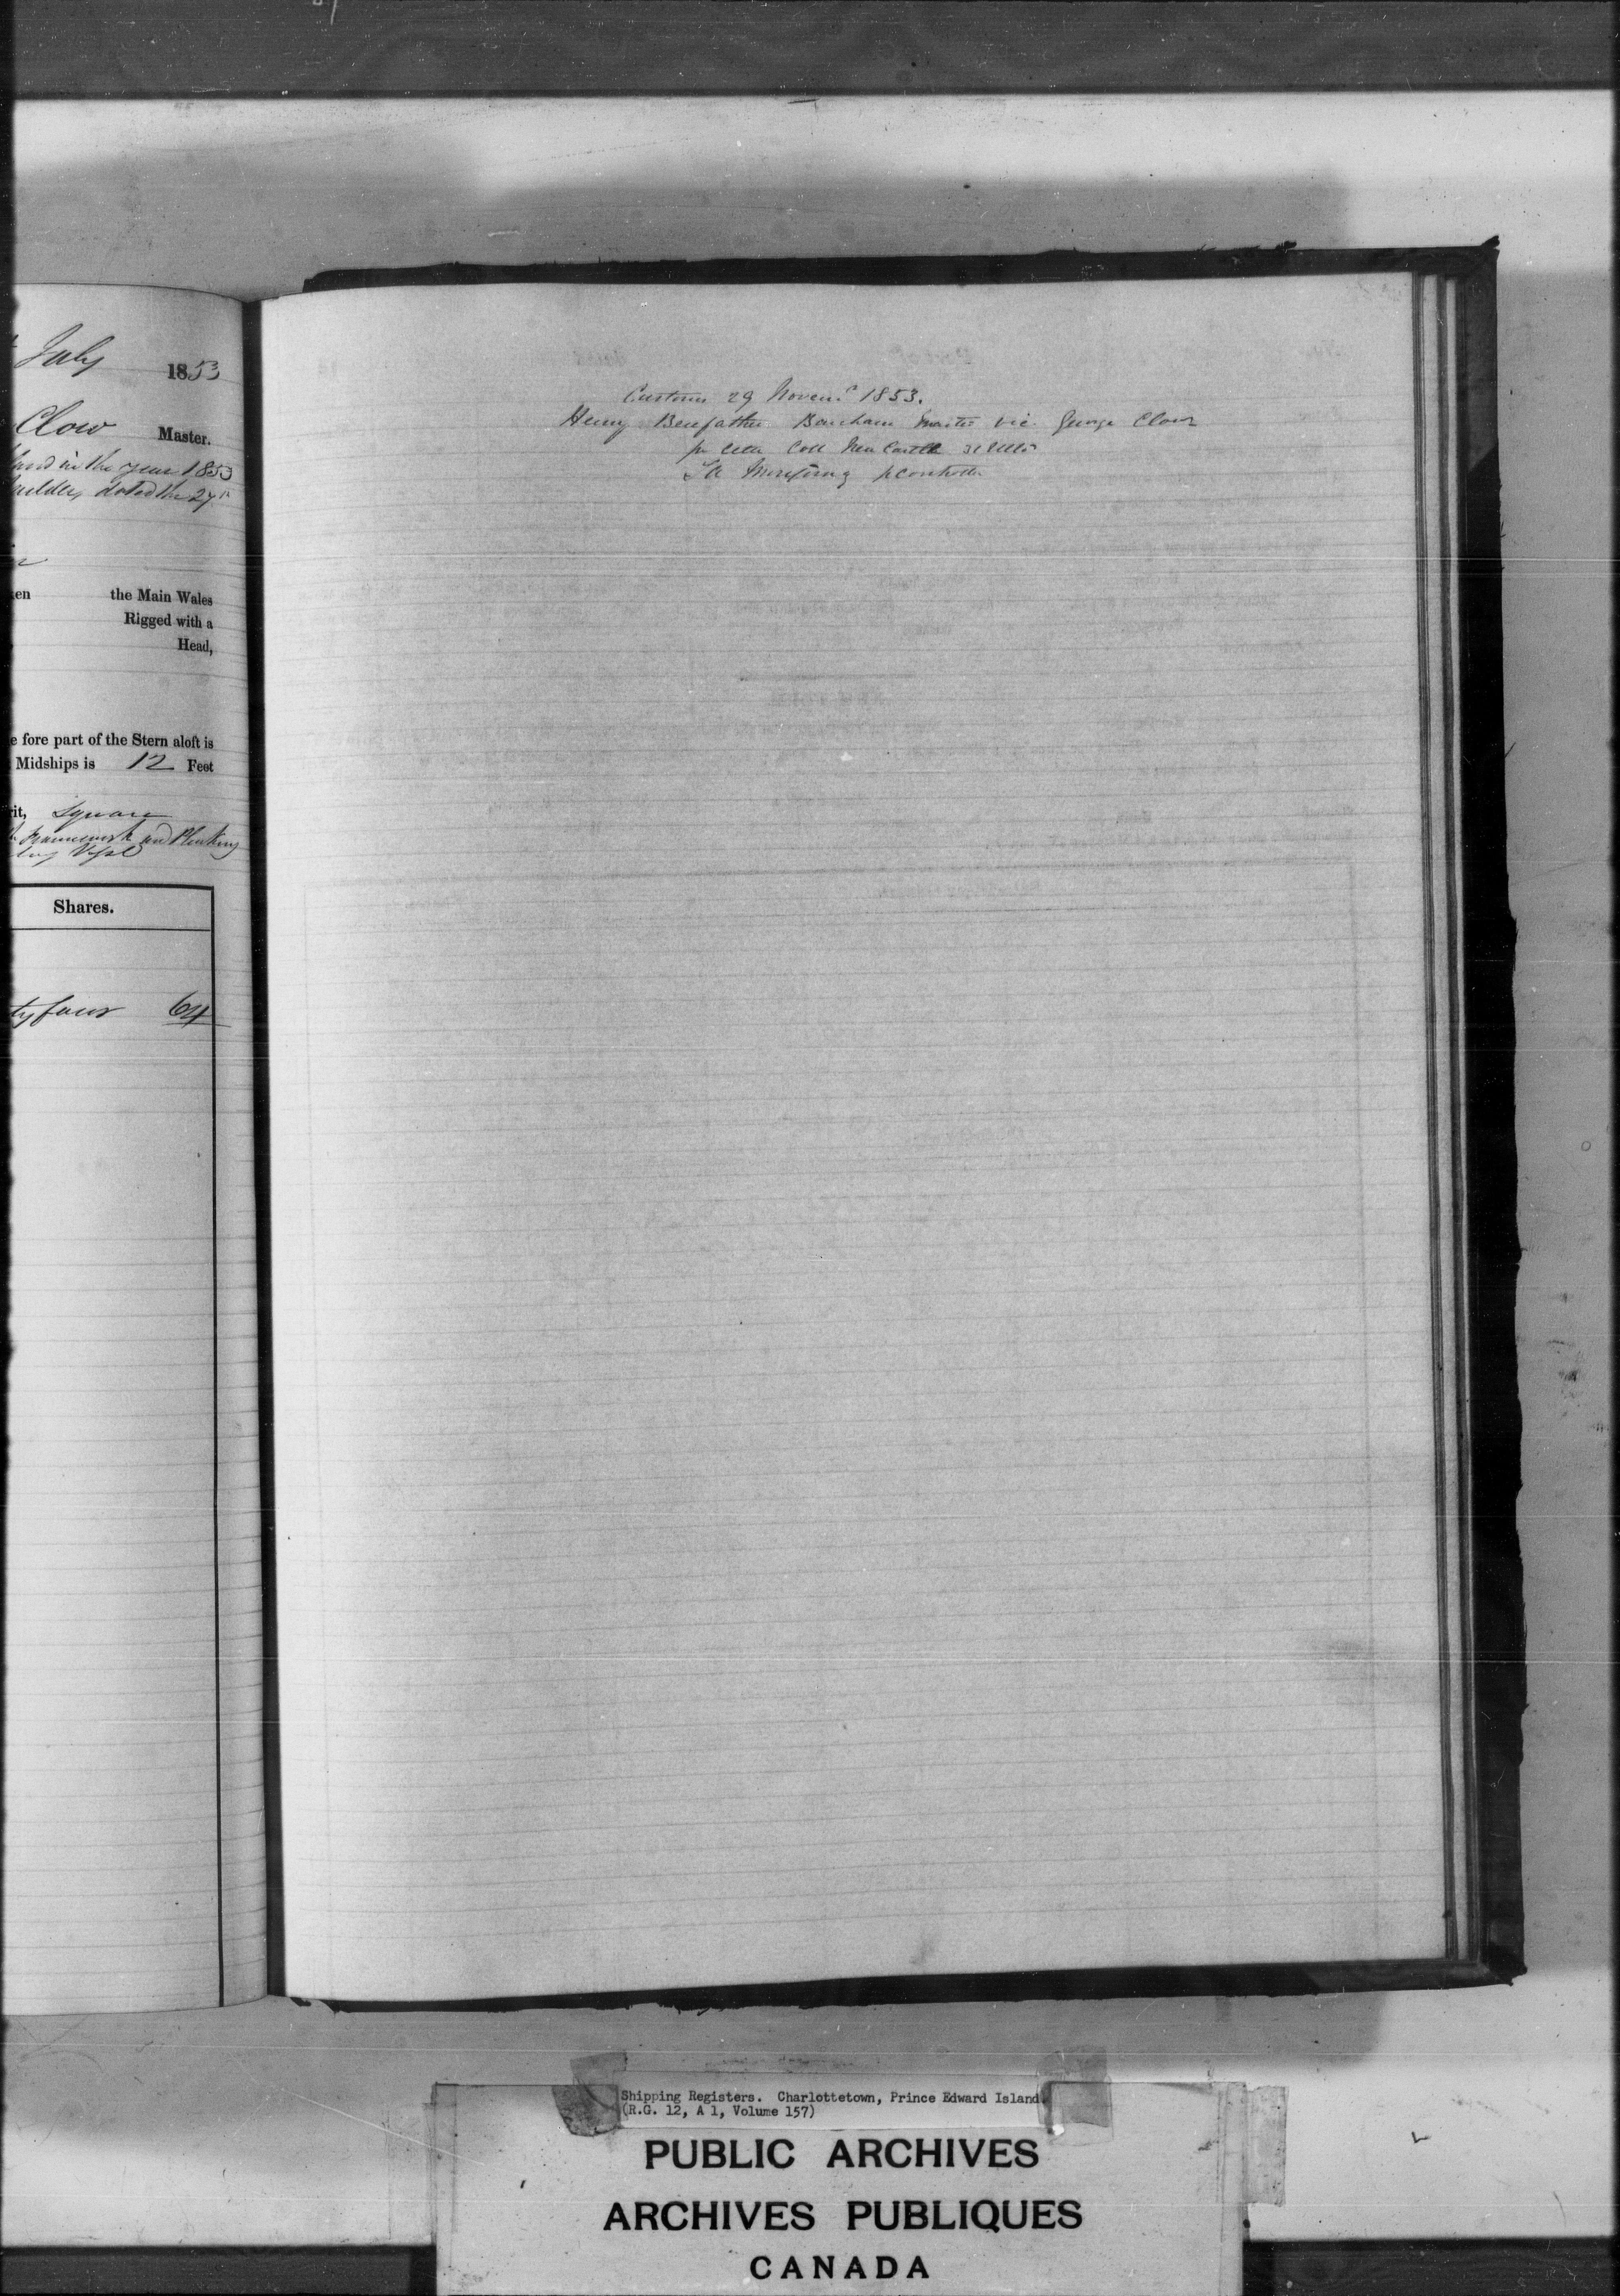 July 1853
Clow Master.
in the year 1853
dated the 27th
en the Main Wales
Rigged with a
Head,
e fore part of the Stern aloft is
Midships is 12 Feet
rit, Square
and Planking
Shares.
ty four 64
Customs 29 Novemr 1853.
Henry Benefather Bencham Master vic George Clow
Coll New Castle
Shipping Registers. Charlottetown, Prince Edward Island
(R.G. 12, A 1, Volume 157)
PUBLIC ARCHIVES
ARCHIVES PUBLIQUES
CANADA